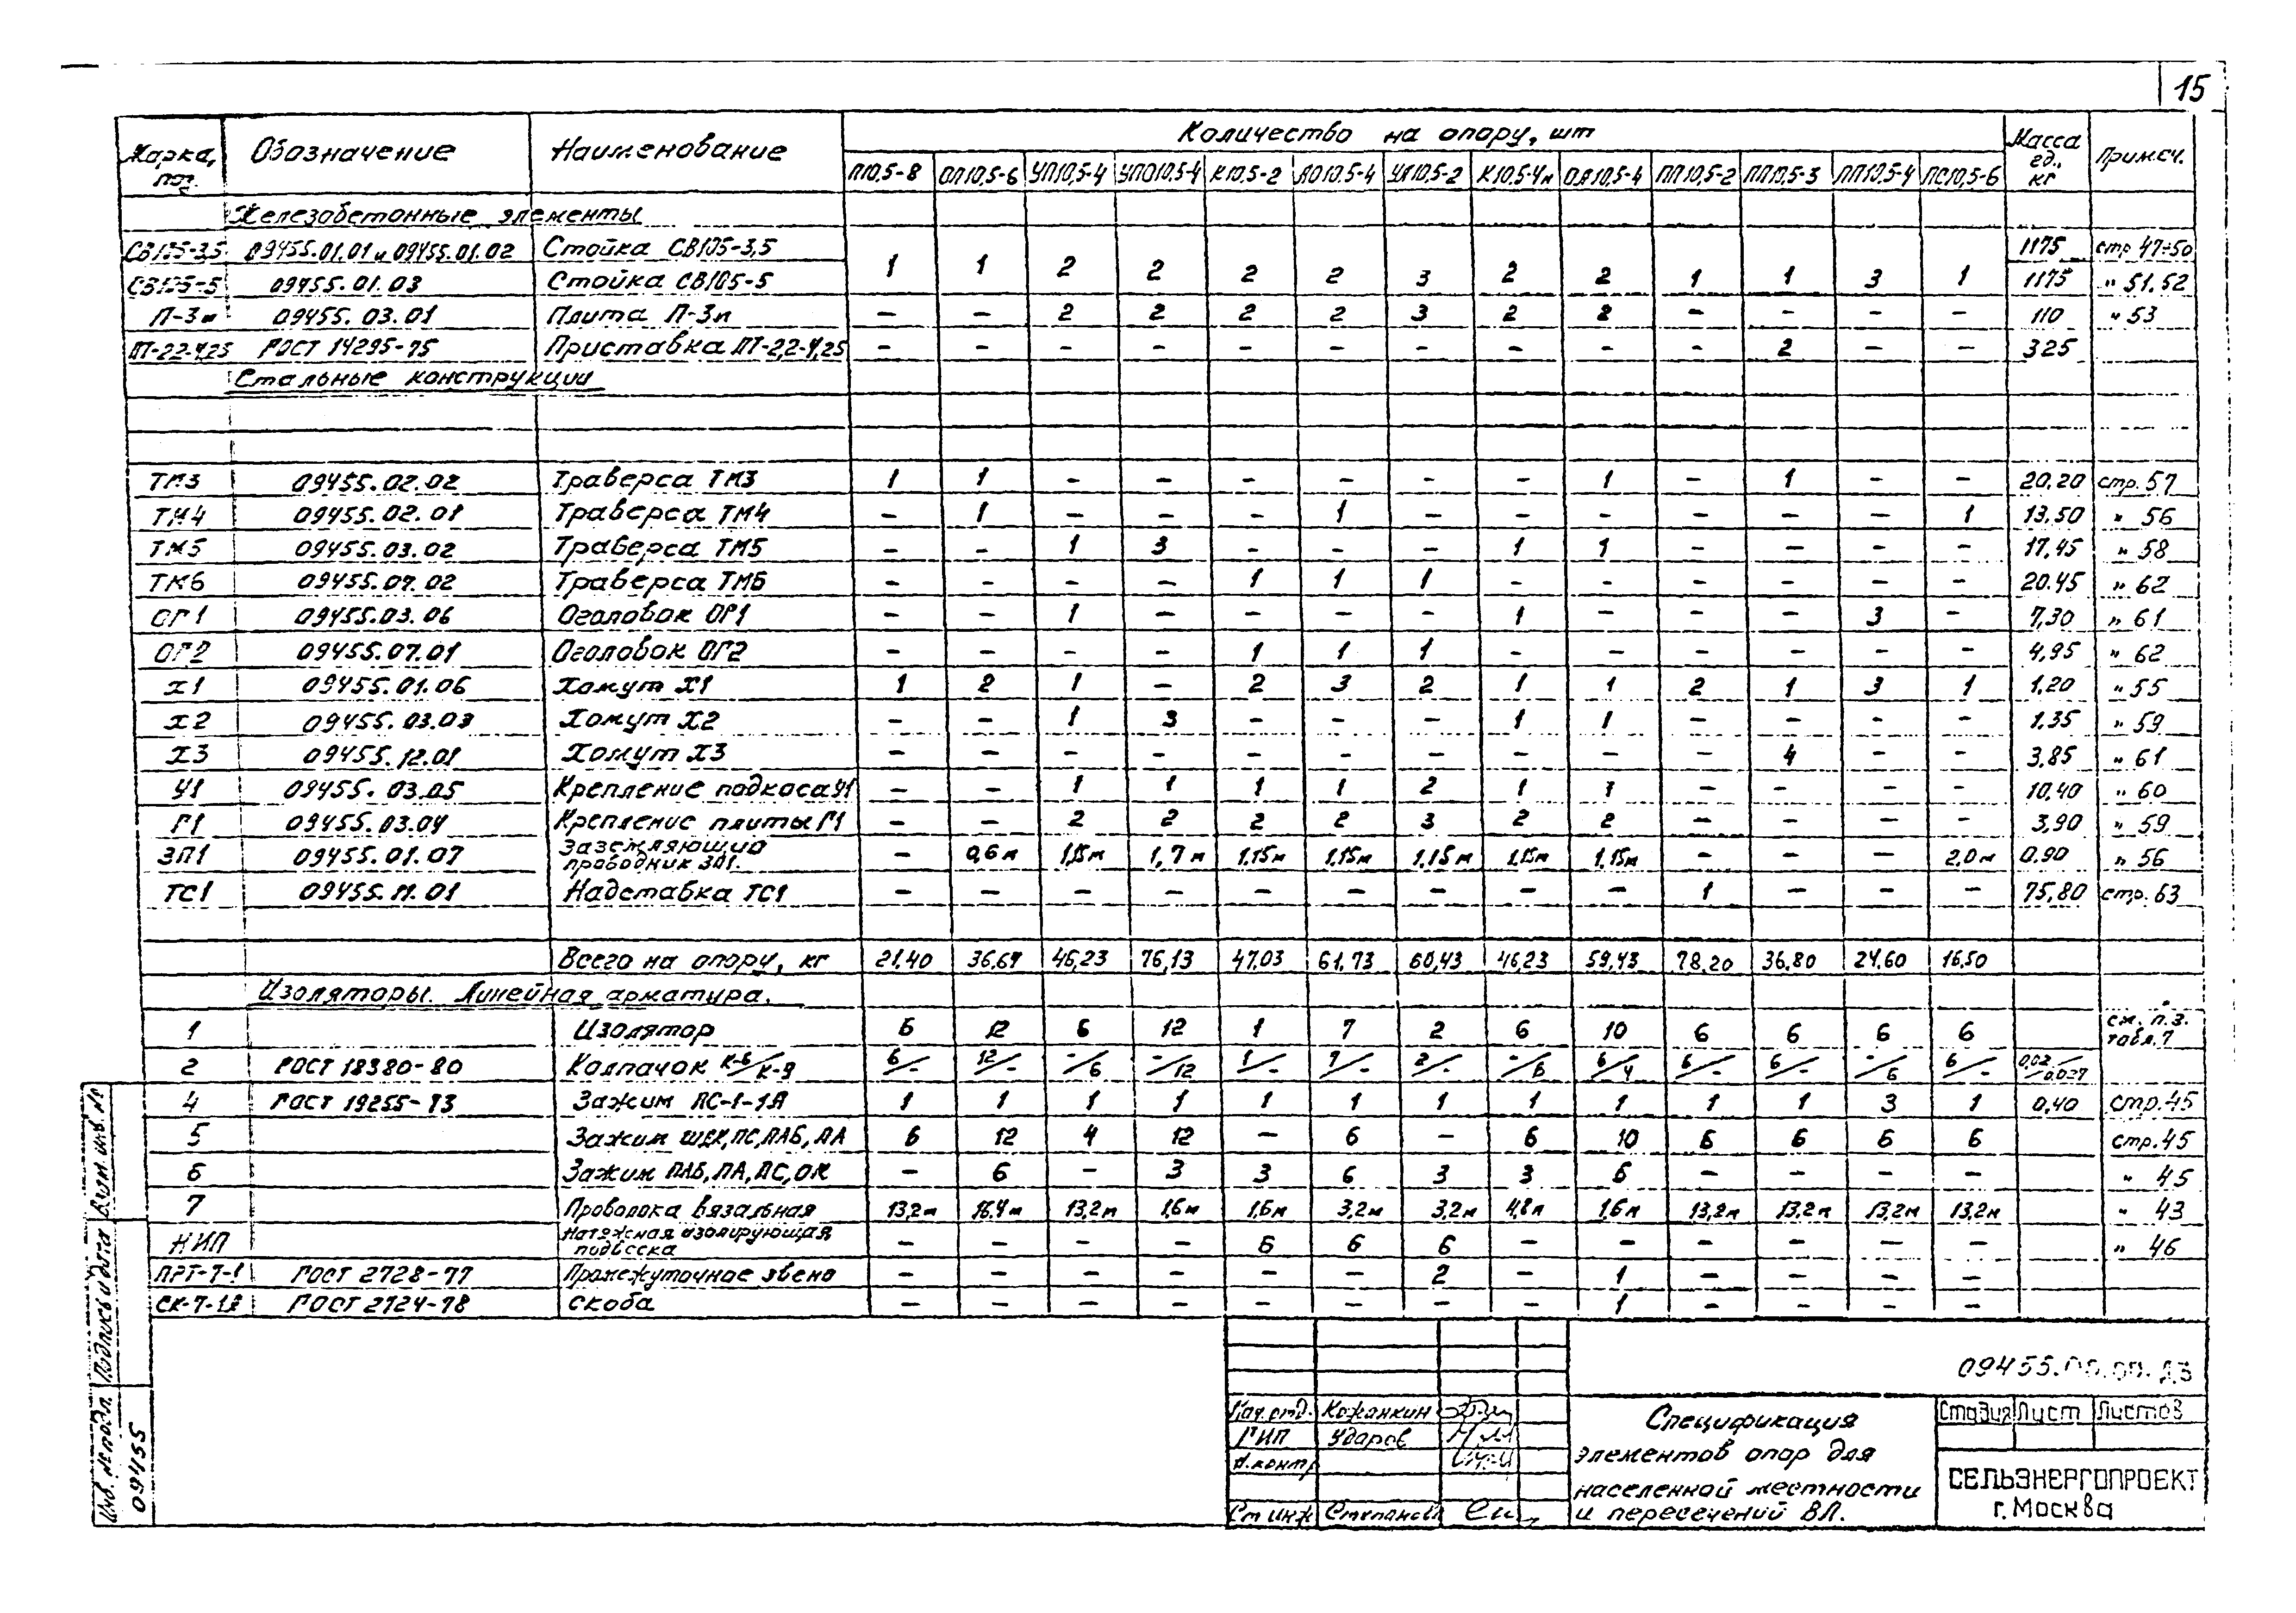 15
Марка, поз. Обозначение Наименование Количество на опору, шт Масса ед., кг Примеч.
П10,5-8 ОП10,5-6 УП10,5-4 УПО10,5-4 К10,5-2 АО10,5-4 УА10,5-2 К10,5-4м ОА10,5-4 ПП10,5-2 ПП10,5-3 ПП10,5-4 ПС10,5-6
Железобетонные элементы
СВ105-3,5 09455.01.01 и 09455.01.02 Стойка СВ105-3,5 1175 стр 47÷50
1 1 2 2 2 2 3 2 2 1 1 3 1
СВ105-5 09455.01.03 Стойка СВ105-5 1175 " 51,52
П-3и 09455.03.01 Плита П-3и – – 2 2 2 2 3 2 2 – – – – 110 " 53
ПТ-2,2-4,25 ГОСТ 14295-75 Приставка ПТ-2,2-4,25 – – – – – – – – – – 2 – – 325
Стальные конструкции
ТМ3 09455.02.02 Траверса ТМ3 1 1 – – – – – – 1 – 1 – – 20,20 стр. 57
ТМ4 09455.02.01 Траверса ТМ4 – 1 – – – 1 – – – – – – 1 13,50 " 56
ТМ5 09455.03.02 Траверса ТМ5 – – 1 3 – – – 1 1 – – – – 17,45 " 58
ТМ6 09455.07.02 Траверса ТМ6 – – – – 1 1 1 – – – – – – 20.45 " 62
ОГ1 09455.03.06 Оголовок ОГ1 – – 1 – – – – 1 – – – 3 – 7,30 " 61
ОГ2 09455.07.01 Оголовок ОГ2 – – – – 1 1 1 – – – – – – 4,95 " 62
Х1 09455.01.06 Хомут Х1 1 2 1 – 2 3 2 1 1 2 1 3 1 1,20 " 55
Х2 09455.03.03 Хомут Х2 – – 1 3 – – – 1 1 – – – – 1.35 " 59
Х3 09455.12.01 Хомут Х3 – – – – – – – – – – 4 – – 3,85 " 61
У1 09455.03.05 Крепление подкоса У1 – – 1 1 1 1 2 1 1 – – – – 10,40 " 60
Г1 09455.03.04 Крепление плиты Г1 – – 2 2 2 2 3 2 2 – – – – 3,90 " 59
ЗП1 09455.01.07 Заземляющий проводник ЗП1. – 0,6м 1,15м 1,7м 1.15м 1.15м 1,15м 1,15м 1.15м – – – 2,0м 0.90 " 56
ТС1 09455.11.01 Надставка ТС1 – – – – – – – – – 1 – – – 75,80 стр. 63
Всего на опору, кг 21,40 36,64 46,23 76,13 47,03 61,73 60,43 46,23 59,43 78,20 36,80 24,60 16,50
Изоляторы. Линейная арматура.
1 Изолятор 6 12 6 12 1 7 2 6 10 6 6 6 6 см. п.з. табл. 7
2 ГОСТ 18380-80 Колпачок К-6/К-9 6/– 12/– –/6 –/12 1/– 7/– 2/– –/6 6/4 6/– 6/– –/6 6/– 0,02/0,027
4 ГОСТ 19255-73 Зажим ПС-1-1А 1 1 1 1 1 1 1 1 1 1 1 3 1 0,40 стр. 45
5 Зажим ШДК, ПС, ПАБ, ПА 6 12 4 12 – 6 – 6 10 6 6 6 6 стр. 45
6 Зажим ПАБ, ПА, ПС, ОК – 6 – 3 3 6 3 3 6 – – – – " 45
7 Проволока вязальная 13,2м 16.4м 13,2м 1,6м 1,6м 3,2м 3,2м 4,8м 1,6м 13,2м 13,2м 13,2м 13,2м " 43
НИП Натяжная изолирующая подвеска – – – – 6 6 6 – – – – – – " 46
ПРТ-7-1 ГОСТ 2728-77 Промежуточное звено – – – – – – 2 – 1 – – – –
СК-7-1А ГОСТ 2724-78 скоба – – – – – – – – 1 – – – –
09455.00.00.Д3
Нач. отд. Кожанкин
ГИП Ударов
Н.контр
Ст инж Степанова
Спецификация
элементов опор для
населенной местности
и пересечений ВЛ.
Стадия Лист Листов
СЕЛЬЭНЕРГОПРОЕКТ
г. Москва
Инв. № подл. Подпись и дата Взам. инв. №
09455